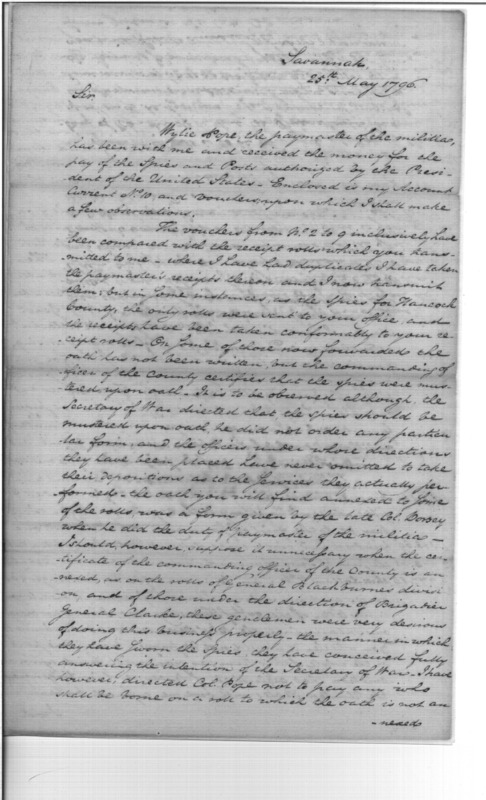 Savannah
25th May 1796.
Sir
Wylie Pope, the paymaster of the militia,
has been with me and received the money for the
pay of the Spies and Posts authorized by the Presi-
dent of the United States - Enclosed is my Account
Current No. 10, and vouchers, upon which I shall make
a few observations.
The vouchers from No. 2 to 9 inclusively have
been compared with the receipt rolls which you trans-
mitted to me - where I have had duplicates I have taken
the paymasters receipts thereon and I now transmit
them; but in some instances, as the Spies for Hancock
County, the only rolls were sent to your office, and
the receipts have been taken conformably to your re-
ceipt rolls - On some of those now forwarded the
oath has not been written, but the commanding of-
ficer of the County certifies that the spies were mus-
tered upon oath - It is to be observed although, the
Secretary of War directed that the spies should be
mustered upon oath, he did not order any particu-
lar form, and the officers under whose directions
they have been placed have never omitted to take
their depositions as to the services they actually per-
formed - the oath you will find annexed to some
of the rolls was a form given by the late Col.
when he did the duty of paymaster of the militia -
I should, however, suppose it unnecessary when the cer-
tificate of the commanding officer of the County is an-
nexed, as on the rolls of General Blackburnes divisi-
on, and of those under the direction of Brigadier
General Clarke, these gentlemen were very desirous
of doing this business properly - the manner in which
they have sworn the spies they have conceived fully
answering the intention of the Secretary of War. I have
however, directed Col. Pope not to pay any who
shall be borne on a roll to which the oath is not an-
-nexed